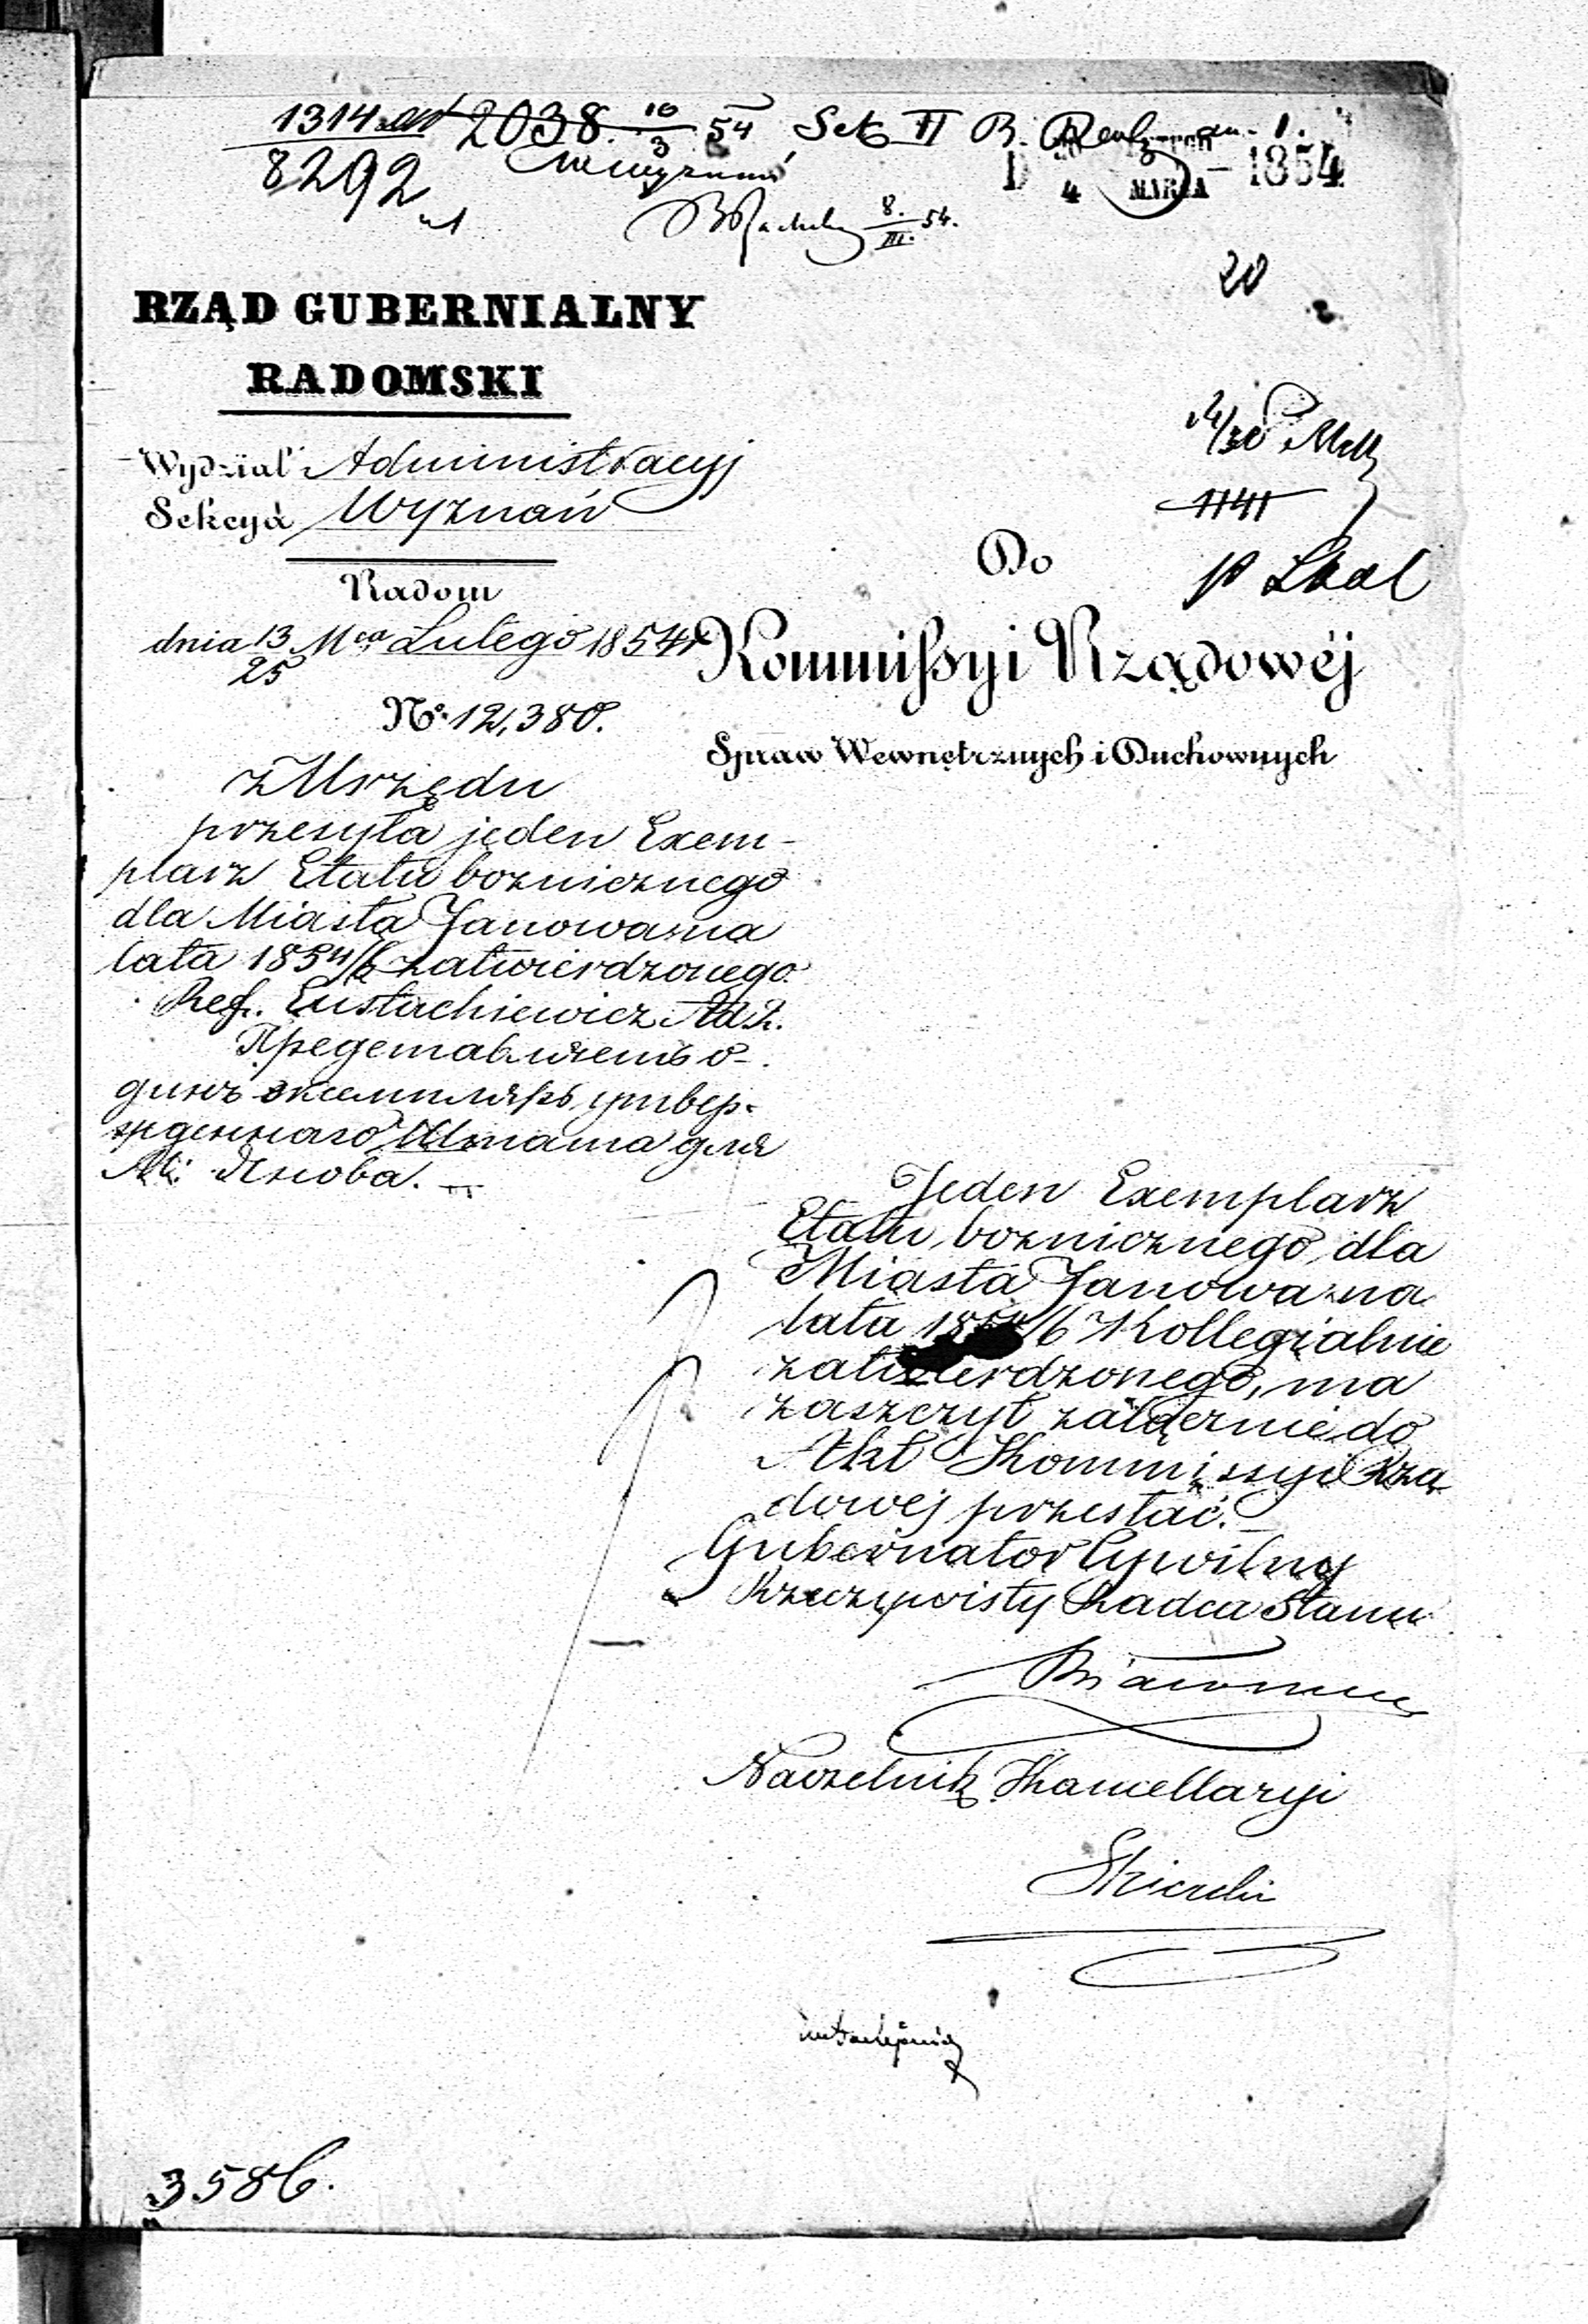 1314 2038 10/3 54 Sek II B.
8292
8./III. 54.
MARCA 1854
4
20
RZĄD GUBERNIALNY
RADOMSKI
Wydział Administracyj
Sekcya Wyznań
1141
Do
Radom
dnia 13/25 Mca Lutego 1854 r
Kommissyi Rządowéj
No. 12,380.
Spraw Wewnętrznych i Duchownych
z Urzędu
przesyła jeden Exem-
plarz Etatu bożnicznego
dla Miasta Janowa na
lata 1854/6 zatwierdzonego.
Ref. Eustachiewicz Ad.
Представленіе о-
динъ экземпляръ утвер-
жденнаго Штата для
М: Янова.
Jeden Exemplarz
Etatu, bożnicznego, dla
Miasta Janowa na
lata 1854/6 Kollegialnie
zatwierdzonego, ma
zaszczyt załącznie do
Akt Kommissyi Rzą
dowéj przesłać.
Gubernator Cywilny
Rzeczywisty Radca Stanu
Naczelnik Kancellaryi
3586.